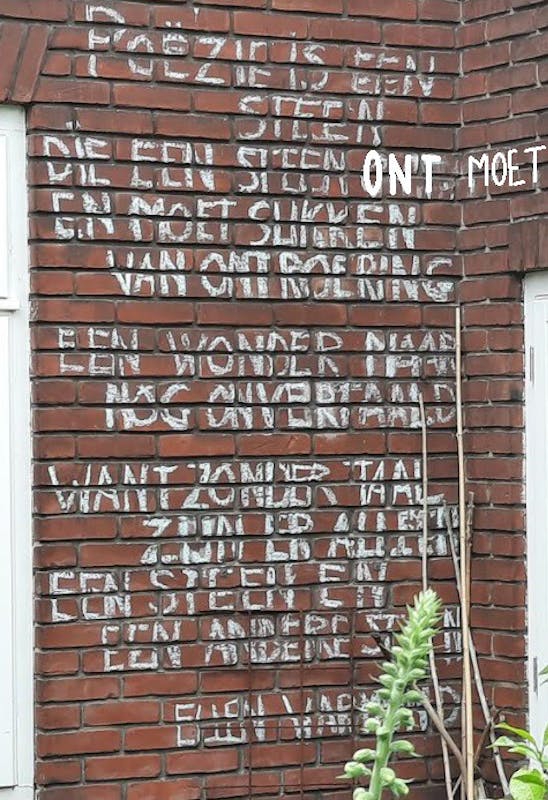 POËZIE IS EEN
STEEN
DIE EEN STEEN ONT MOET
EN MOET SLIKKEN
VAN ONTROERING
EEN WONDER NAAR
NOG ONVERTAALD
WANT ZONDER TAAL
ZIJN ER ALLEEN
EEN STEEN EN
EEN ANDERE STEEN
ELLEN